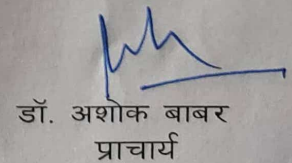 डॉ. अशोक बाबर
प्राचार्य